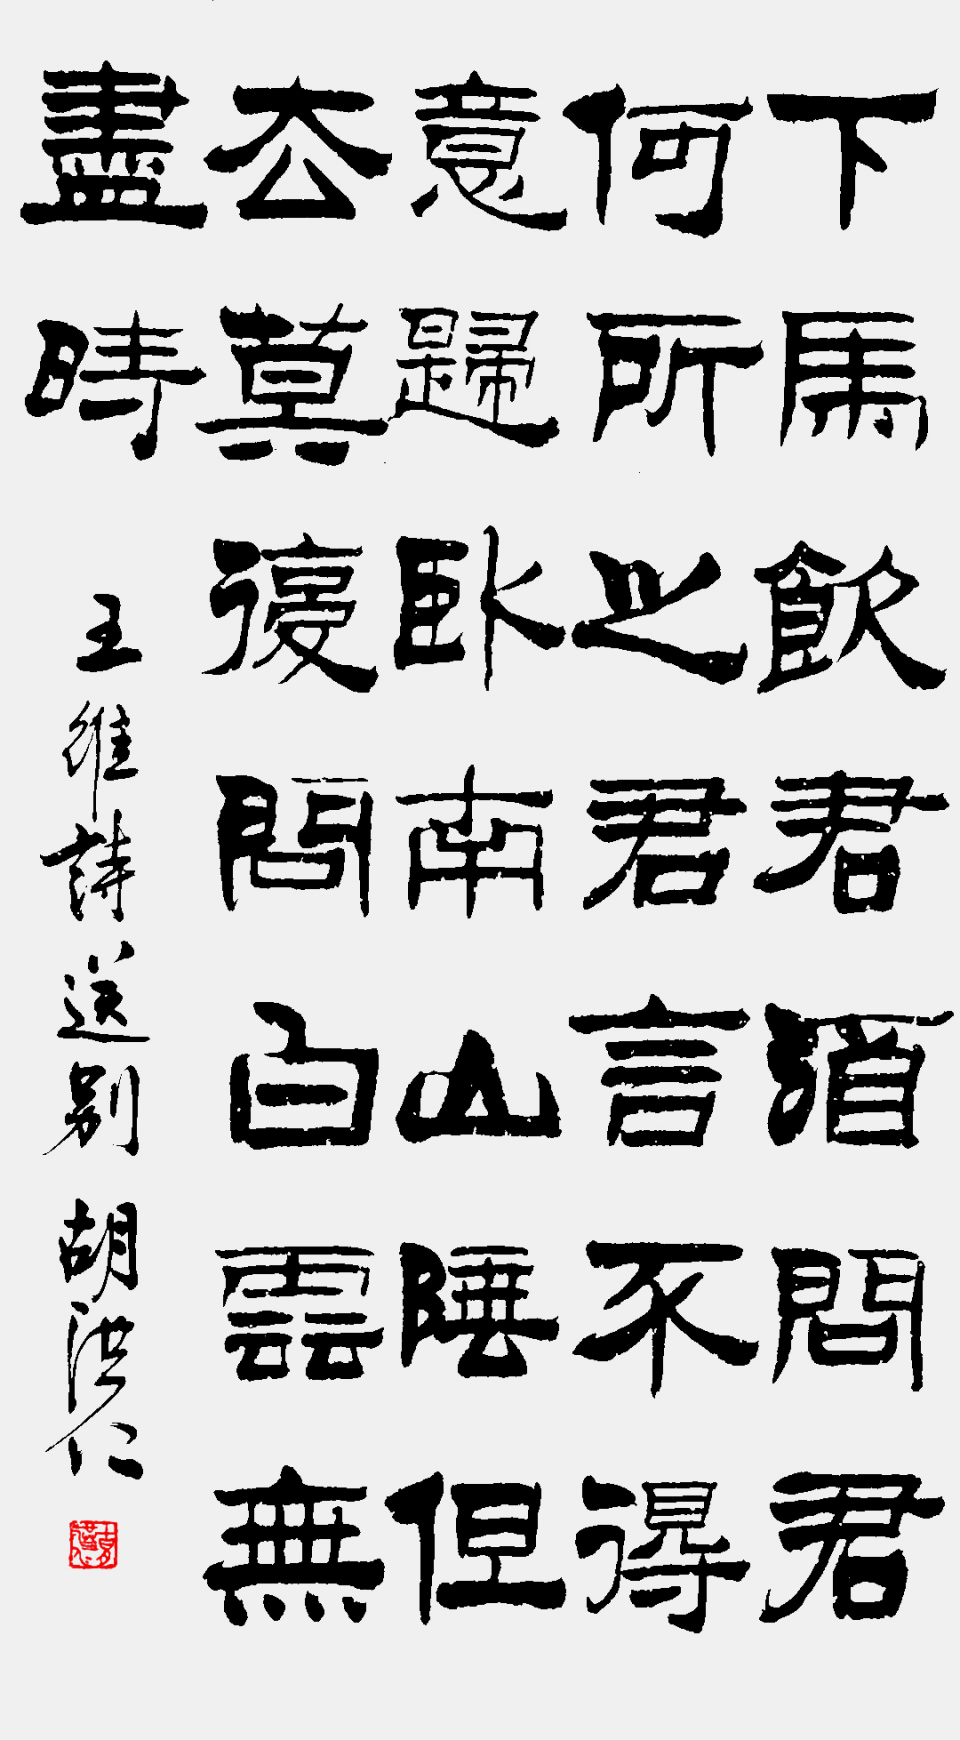 下馬飲君酒問君
何所之君言不得
意歸卧南山陲但
去莫復問白雲無
盡時
王維詩送别 胡洪仁